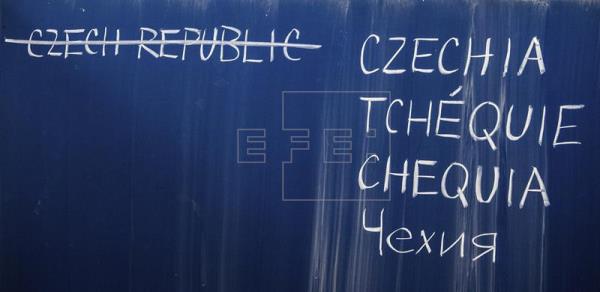 CZECH REPUBLIC
CZECHIA
TCHÉQUIE
CHEQUIA
Чехия
EFE: